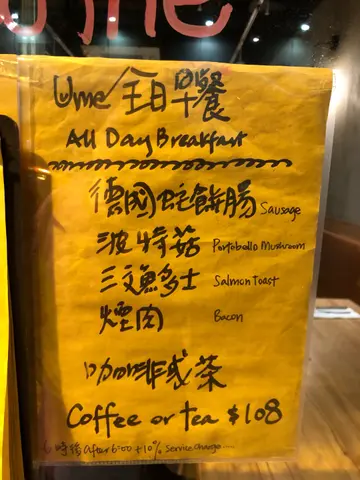 Ume 全日早餐
All Day Breakfast
德國蚝餅腸 Sausage
波特菇 Portobello Mushroom
三文魚多士 Salmon Toast
煙肉 Bacon
咖啡或茶
Coffee or tea $108
6時後 After 6:00 +10% Service Charge